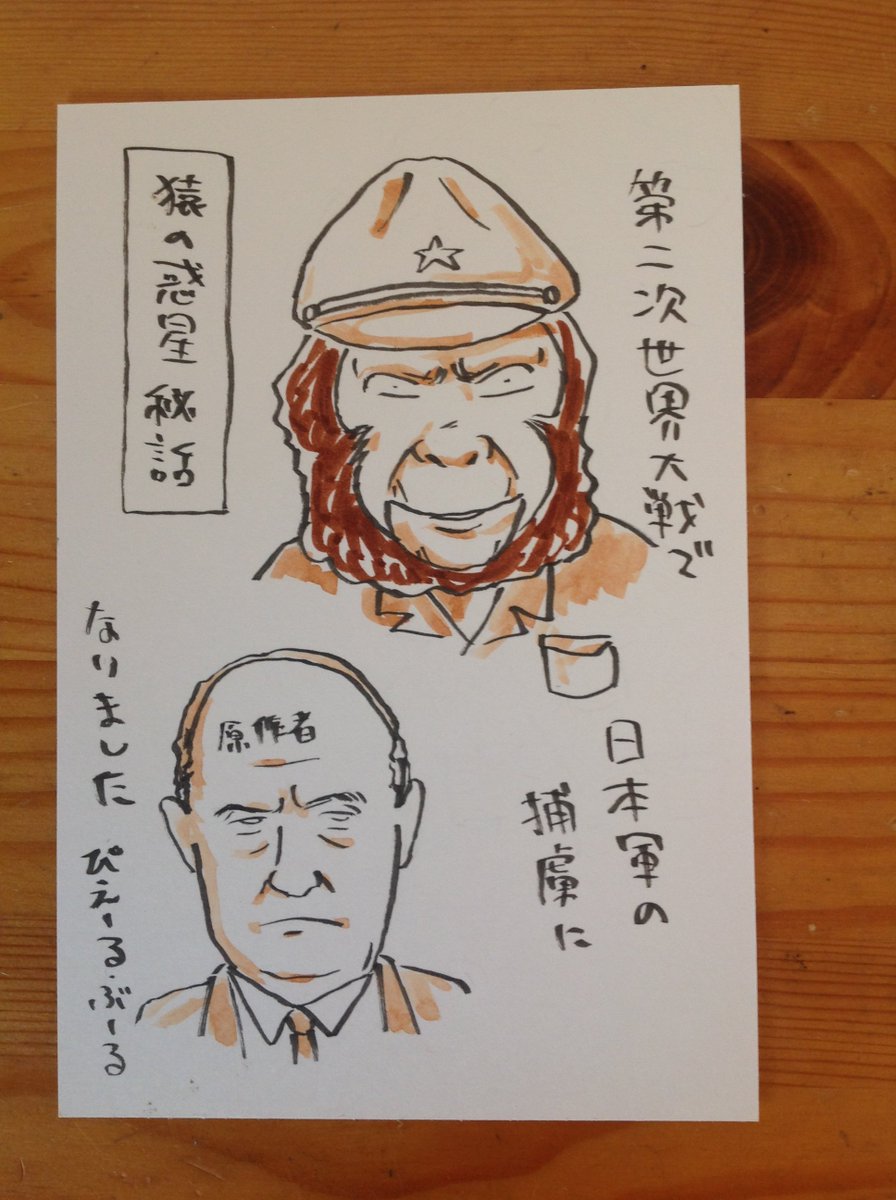 猿の惑星 秘話
第二次世界大戦で
日本軍の
捕虜に
原作者
なりました ぴえーる・ぶーる